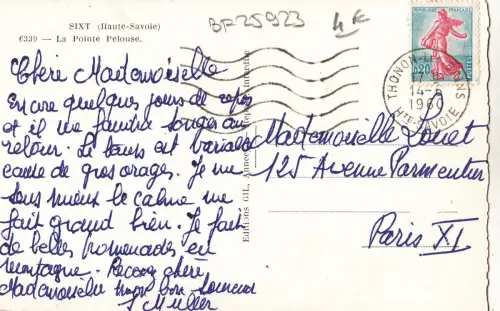 SIXT (Haute-Savoie)
6339 — La Pointe Pelouse.
BF25923
4€
Chère Mademoiselle
Encore quelques jours de repos
et il me faudra songer au
retour. Le temps est variable
cause de gros orages. Je me
sens mieux le calme me
fait grand bien. Je fait
de belles promenades en
montagne. Recevez chère
Mademoiselle mon bon souvenir
Muller
Editions GIL, Annecy
interdite
REPUBLIQUE FRANCAISE
POSTES
0,20
THONON-LES
14-8
1960
HTE-SAVOIE
Mademoiselle
125 Avenue Parmentier
Paris XI